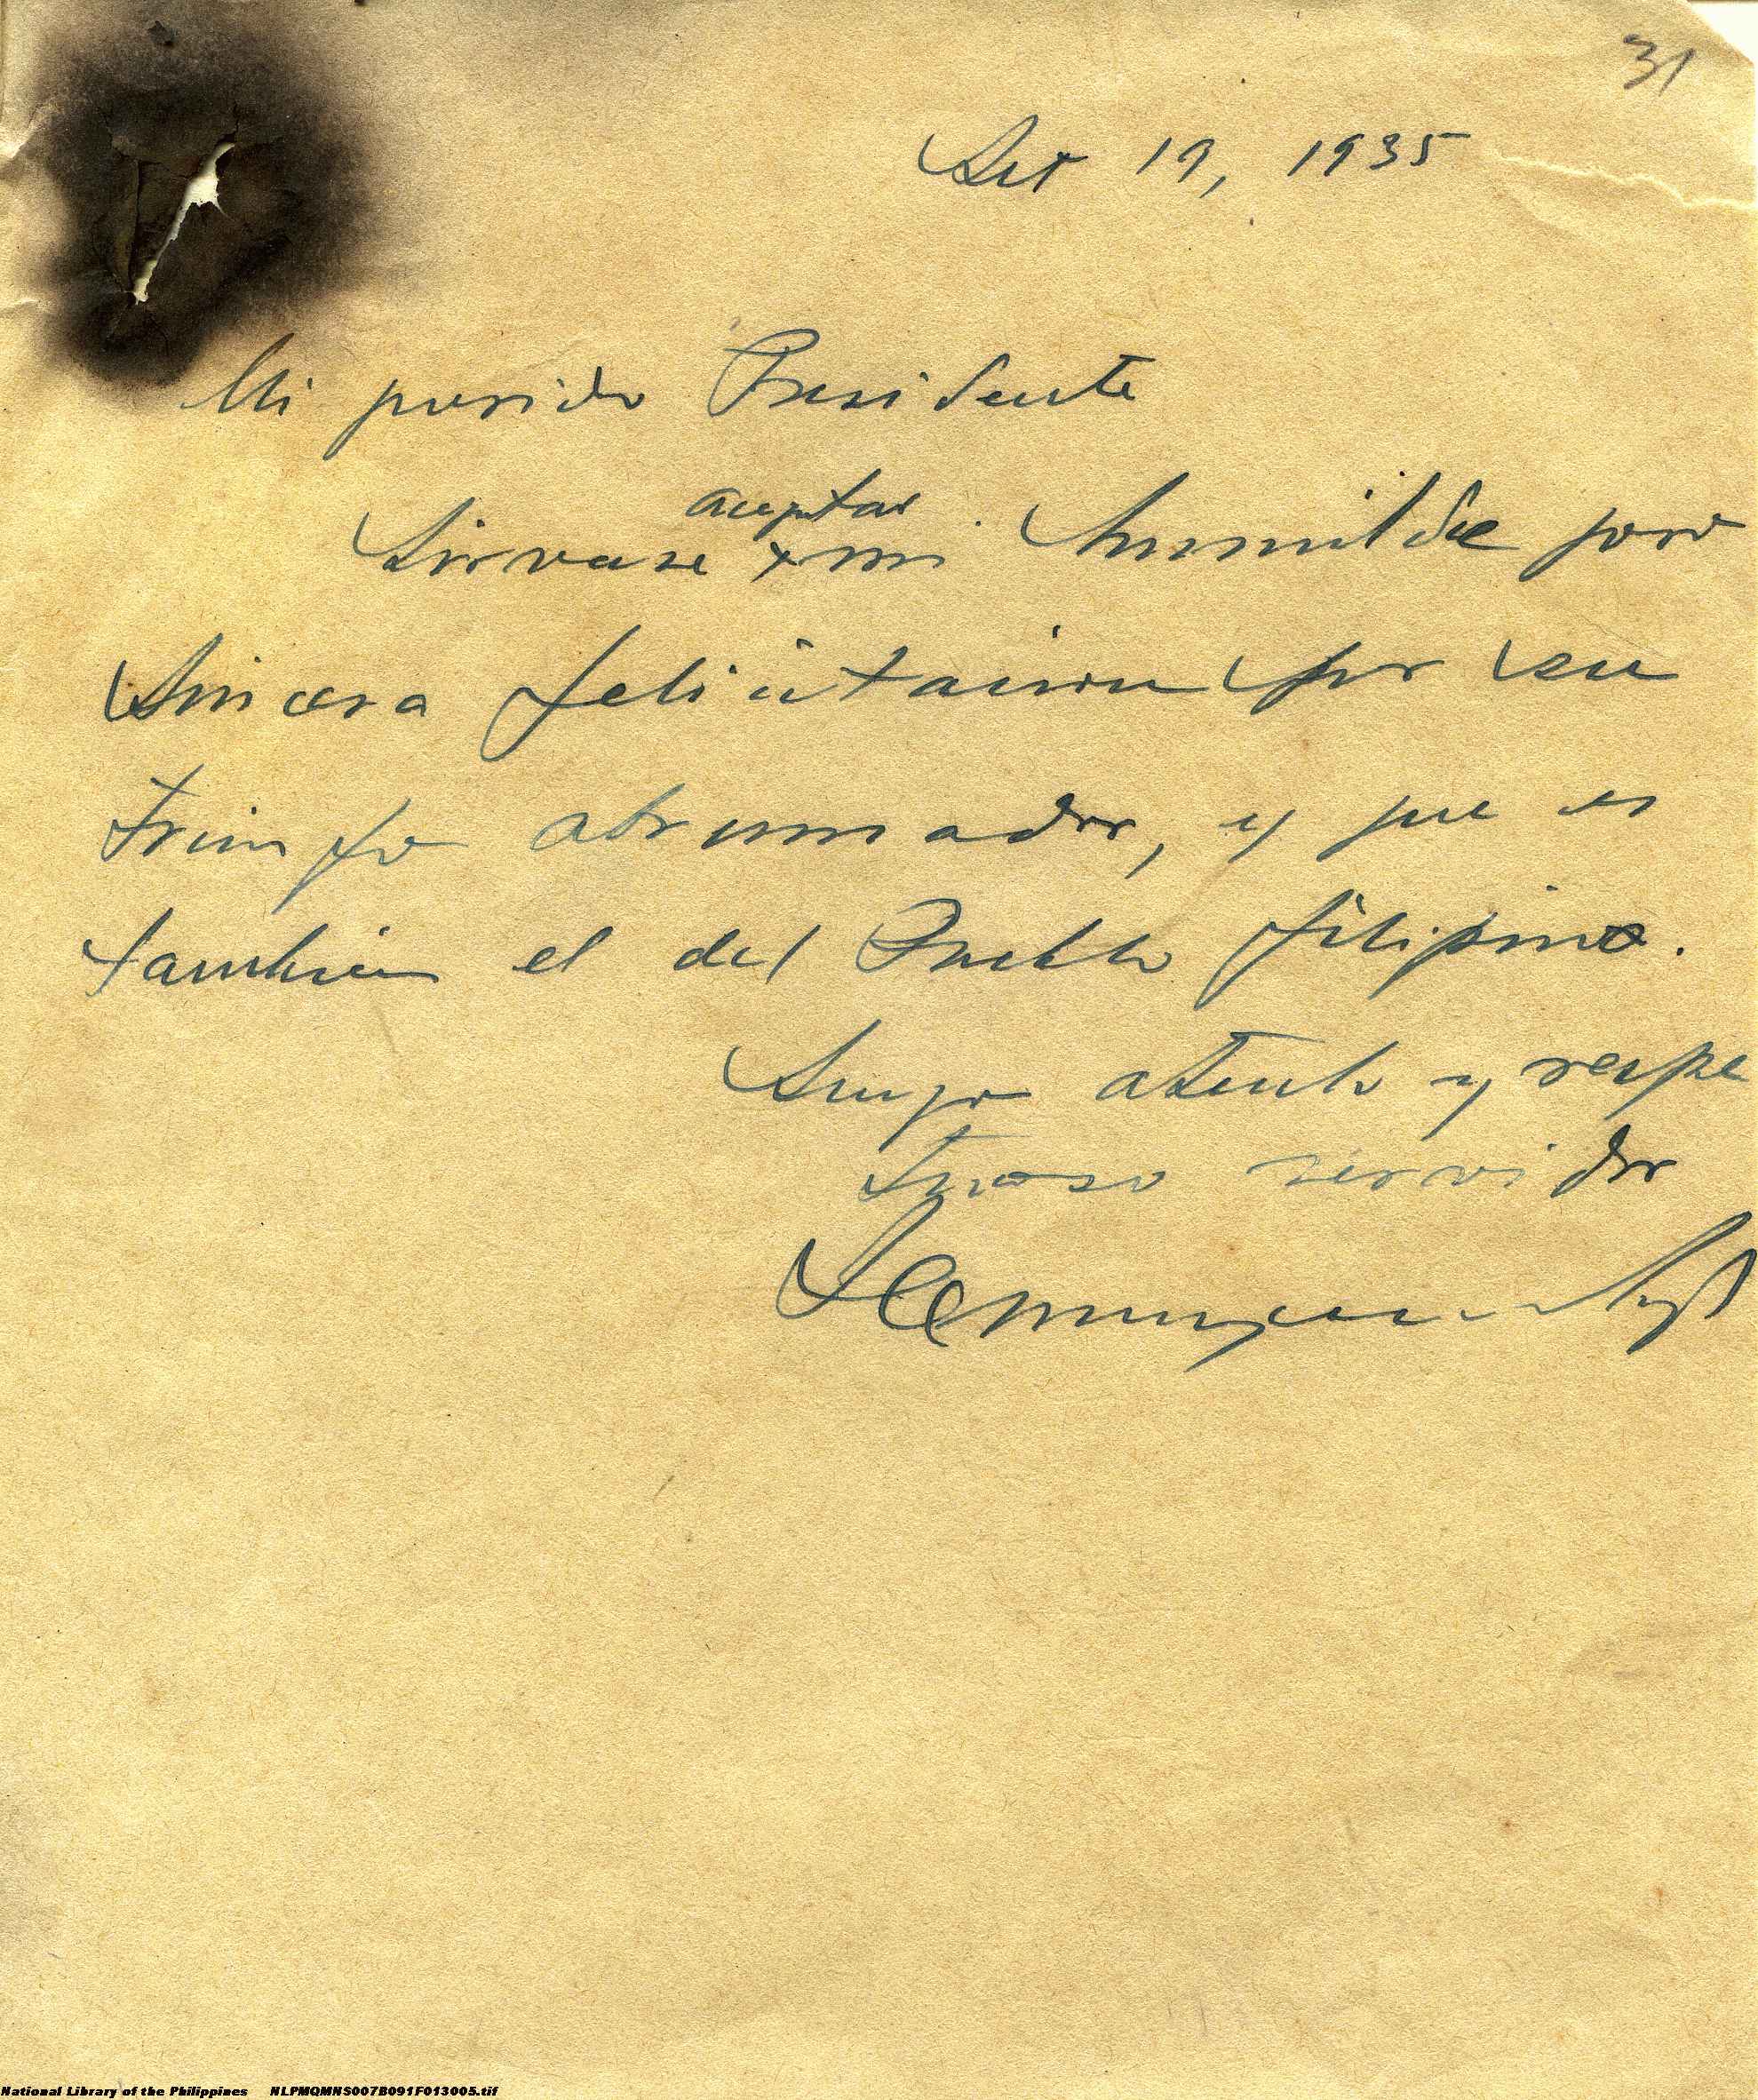 31
Set 19, 1935
Mi querido Presidente
aceptar
Sirvase x mi humilde pero
sincera felicitacion por su
triunfo abrumador, y que es
tambien el del Pueblo filipino.
Suyo atento y respe
tuoso servidor
National Library of the Philippines NLPMQMNS007B091F013005.tif